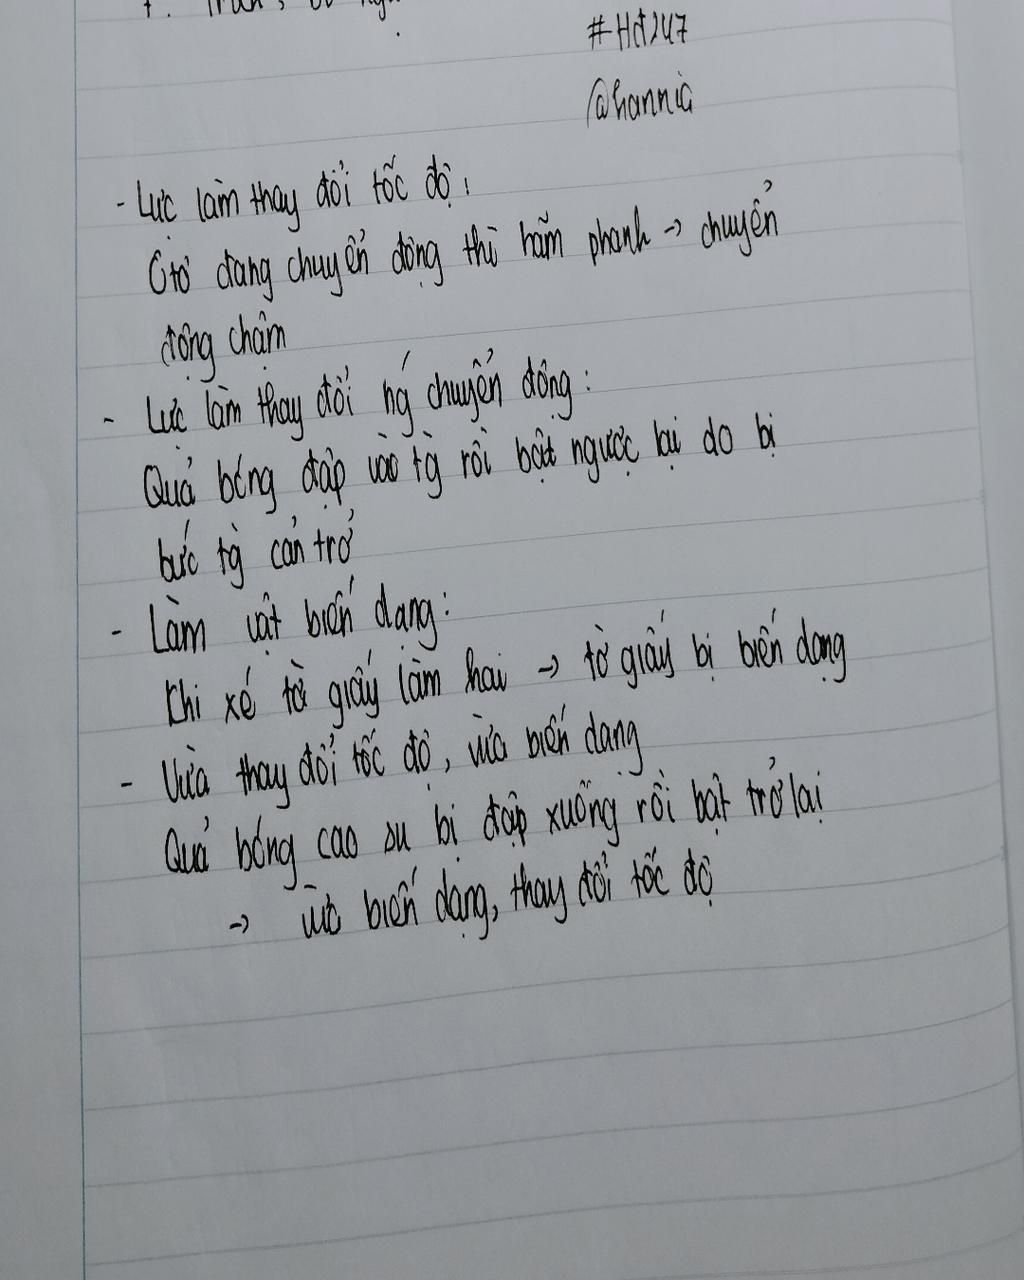 #Hđ247
@hannia
- Lực làm thay đổi tốc độ:
Ôtô đang chuyển động thì hãm phanh → chuyển
động chậm
- Lực làm thay đổi hg' chuyển động:
Quả bóng đập vào tg̀ rồi bật ngược lại do bị
bức tg̀ cản trở
- Làm vật biến dạng:
Khi xé tờ giấy làm hai → tờ giấy bị biến dạng
- Vừa thay đổi tốc độ, vừa biến dạng
Quả bóng cao su bị đập xuống rồi bật trở lại
→ vừa biến dạng, thay đổi tốc độ